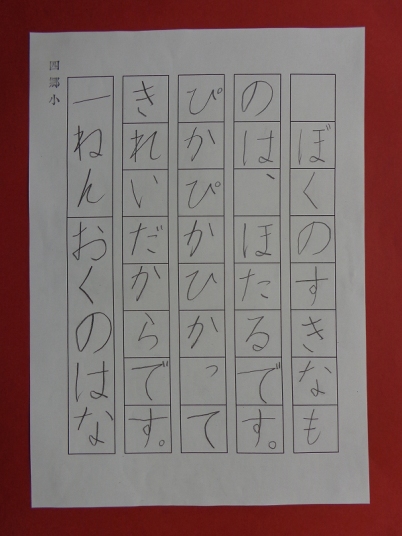 ぼくのすきなも
のは、ほたるです。
ぴかぴかひかっ​て
きれいだからです。
一ねん おくのはな
四郷小